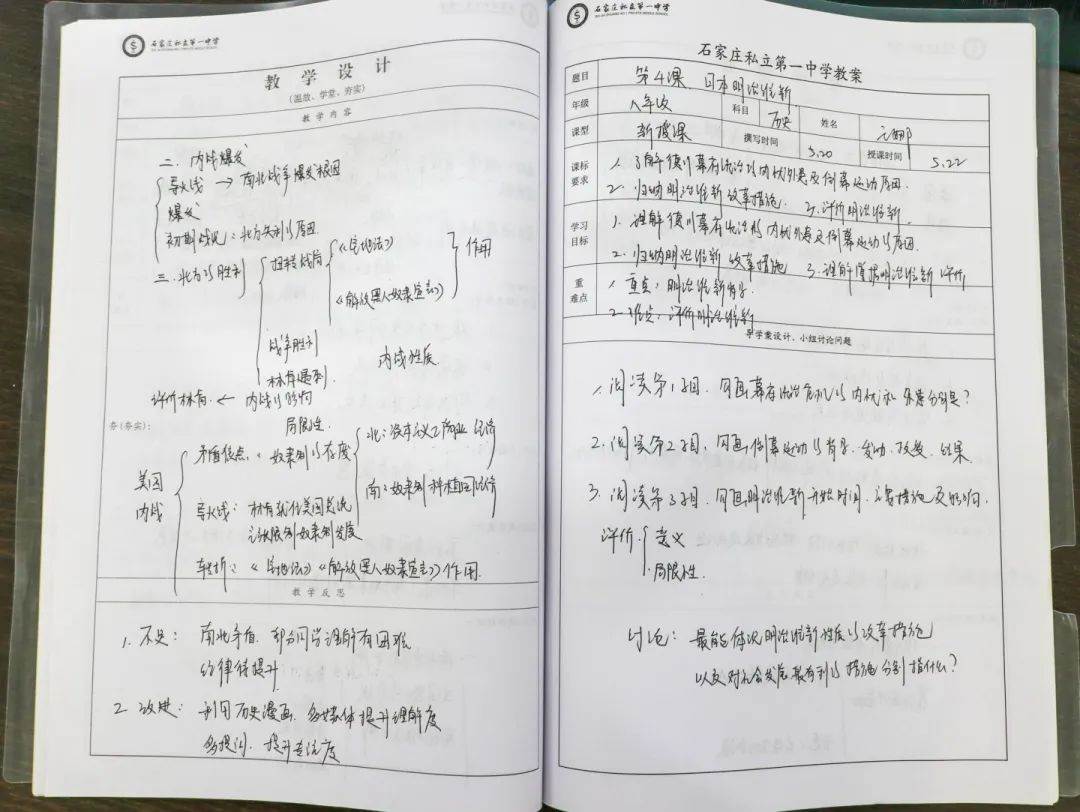 石家庄私立第一中学
教学设计
(温故、学堂、夯实)
教学内容
二. 内战爆发
导火线 → 南北战争爆发根因
爆发
初期战况：北方失利的原因.
三. 北方的胜利
扭转战局
《宅地法》
《解放黑人奴隶宣言》
作用
战争胜利
林肯遇刺.
内战性质.
评价林肯. ← 内战的影响
局限性.
夯(夯实):
美国
内战
矛盾焦点：奴隶制的存废
北：资本主义工商业经济
南：奴隶制种植园经济
导火线：林肯就任美国总统
主张限制奴隶制发展
转折：《宅地法》《解放黑人奴隶宣言》作用.
教学反思
1. 不足： 南北矛盾. 部分同学理解有困难
纪律待提升.
2. 改进： 利用历史漫画. 多媒体提升理解度
多提问. 提升专注度
石家庄私立第一中学
石家庄私立第一中学教案
题目 第4课. 日本明治维新
年级 八年级 科目 历史 姓名
课型 新授课 撰写时间 5.20 授课时间 5.22
课标要求
1. 了解德川幕府统治的内忧外患及倒幕运动原因.
2. 归纳明治维新改革措施. 3. 评价明治维新.
学习目标
1. 理解德川幕府统治的内忧外患及倒幕运动的原因.
2. 归纳明治维新改革措施 3. 理解掌握明治维新评价
重难点
1. 重点：明治维新背景.
2. 难点：评价明治维新
导学案设计、小组讨论问题
1. 阅读第1子目. 勾画幕府统治危机的内忧和外患分别是?
2. 阅读第2子目. 勾画倒幕运动的背景. 发动. 政变. 结果
3. 阅读第3子目. 勾画明治维新开始时间. 主要措施及影响.
评价.
意义
局限性.
讨论： 最能体现明治维新性质的改革措施
以及对社会发展最有利的措施分别指什么?